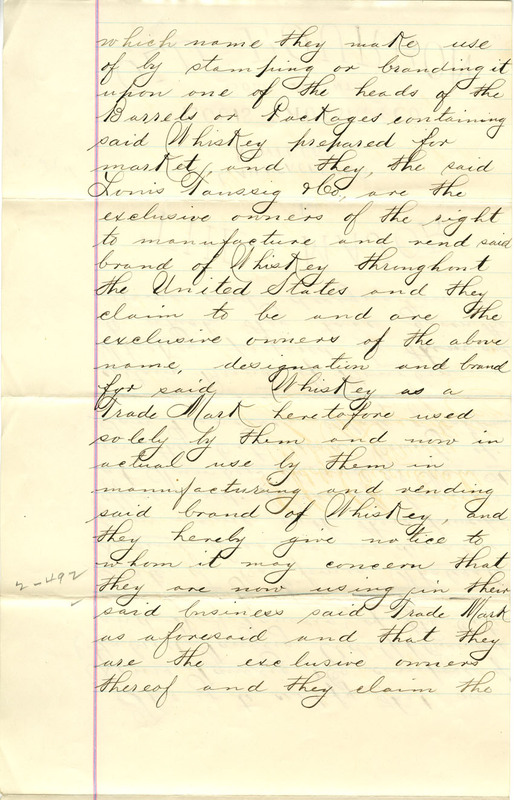 which name they make use
of by stamping or branding it
upon one of the heads of the
Barrels or Packages containing
said Whiskey prepared for
market, and they, the said
Louis Taussig & Co, are the
exclusive owners of the right
to manufacture and vend said
brand of Whiskey throughout
the United States and they
claim to be and are the
exclusive owners of the above
name, designation and brand
for said Whiskey as a
Trade Mark heretofore used
solely by them and now in
actual use by them in
manufacturing and vending
said brand of Whiskey, and
they hereby give notice to
whom it may concern that
2-492
they are now using in their
said business said Trade Mark
as aforesaid and that they
are the exclusive owners
thereof and they claim the